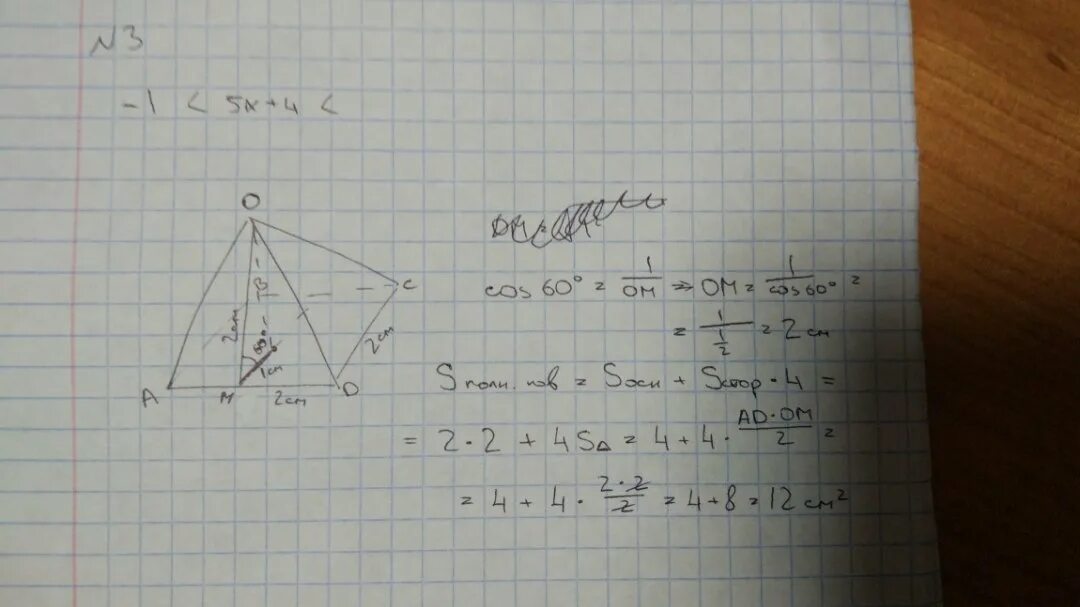 №3
-1 < 5x+4 <
O
B
C
2см
60°
1см
2см
A
M
2см
D
cos 60° = 1/OM ⇒ OM = 1/cos 60° =
= 1/(1/2) = 2 см
S полн. пов = S осн + S стор · 4 =
= 2 · 2 + 4 S△ = 4 + 4 · AD · OM/2 =
= 4 + 4 · 2 · 2/2 = 4 + 8 = 12 см²